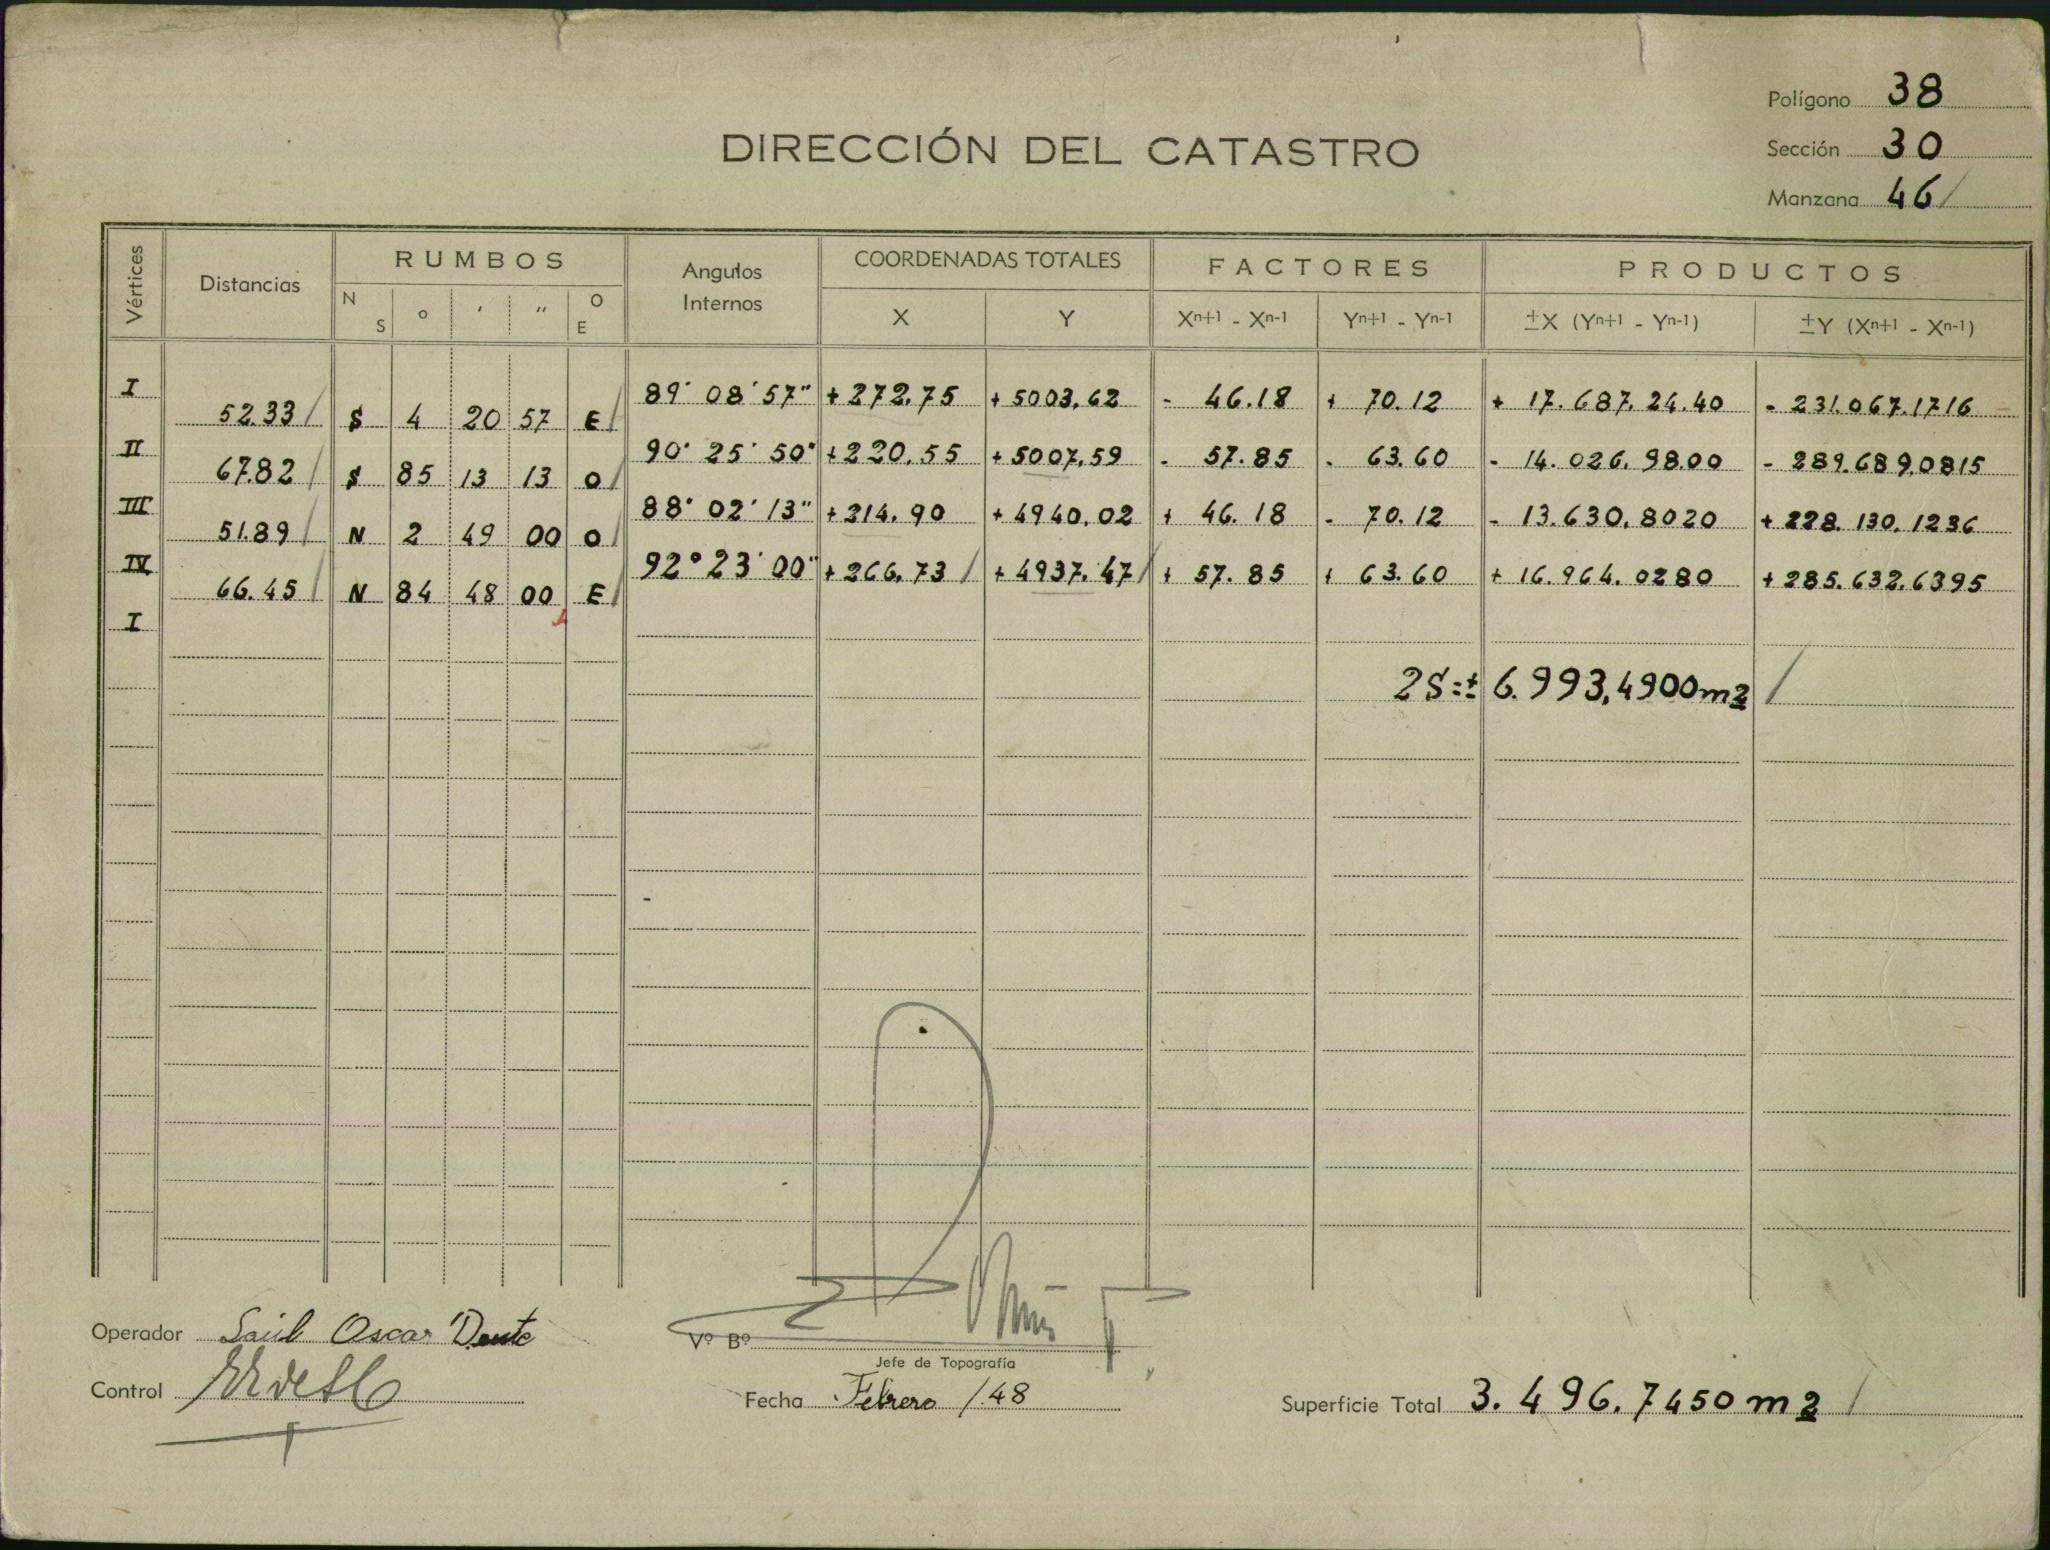 Polígono 38
DIRECCIÓN DEL CATASTRO
Sección 30
Manzana 46
Vértices Distancias RUMBOS Angulos Internos COORDENADAS TOTALES FACTORES PRODUCTOS
N S ° ' " O E X Y Xn+1 - Xn-1 Yn+1 - Yn-1 ±X (Yn+1 - Yn-1) ±Y (Xn+1 - Xn-1)
I 89° 08' 57" +272.75 +5003,62 - 46.18 + 70.12 + 17.687.24.40 - 231.067.1716
52.33 S 4 20 57 E
II 90° 25' 50" +220.55 +5007,59 - 57.85 - 63.60 - 14.026.9800 - 289.689.0815
67.82 S 85 13 13 O
III 88° 02' 13" +214.90 +4940.02 + 46.18 - 70.12 - 13.630,8020 +228.130.1236
51.89 N 2 49 00 O
IV 92° 23' 00" +266.73 +4937.47 + 57.85 + 63.60 + 16.964.0280 +285.632.6395
66.45 N 84 48 00 E
I
2S=± 6.993,4900 m2
Operador Saúl Oscar Dente
Vº Bº
Jefe de Topografía
Control
Fecha Febrero /48
Superficie Total 3.496.7450 m2